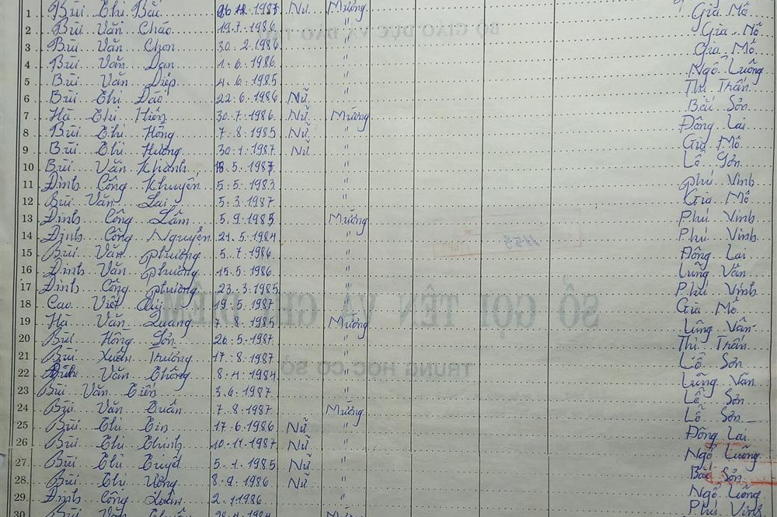 1 Bùi Thị Bắc 1987 Nữ Mường Gia Mô
2 Bùi Văn Cháo 19.7.1986 " Gia Mô
3 Bùi Văn Chơn 30.2.1986 " Gia Mô
4 Bùi Văn Dan 1.6.1986 " Ngổ Luông
5 Bùi Văn Diếp 4.6.1985 " Thị Trấn
6 Bùi Thị Đào 22.6.1986 Nữ " Bắc Sơn
7 Hà Thị Hiền 30.7.1986 Nữ Mường Đông Lai
8 Bùi Thị Hồng 7.8.1985 Nữ " Gia Mô
9 Bùi Thị Hương 30.1.1987 Nữ " Lỗ Sơn
10 Bùi Văn Khánh 5.1987 "
11 Đinh Công Khuyến 5.5.1983 " Phú Vinh
12 Bùi Văn Lai 5.3.1987 " Gia Mô
13 Đinh Công Lâm 5.9.1985 Mường Phú Vinh
14 Đinh Công Nguyên 21.5.1984 " Phú Vinh
15 Bùi Văn Phương 5.7.1986 " Đông Lai
16 Đinh Văn Phương 15.5.1986 " Lũng Vân
17 Đinh Công Phương 23.3.1985 " Phú Vinh
18 Cao Việt 19.5.1987 " Gia Mô
19 Hà Văn Quang 7.8.1985 Mường Lũng Vân
20 Bùi Hồng Sơn 26.5.1987 " Thị Trấn
21 Bùi Xuân Trường 17.8.1987 " Lỗ Sơn
22 Văn Thông 8.4.1984 " Lũng Vân
23 Bùi Văn Tiến 3.6.1987 " Lỗ Sơn
24 Bùi Văn Tuấn 7.8.1987 Mường Lỗ Sơn
25 Bùi Thị Tin 17.6.1986 Nữ " Đông Lai
26 Bùi Thị Thinh 10.11.1987 Nữ " Ngổ Luông
27 Bùi Thị Tuyết 5.1.1985 Nữ " Bắc Sơn
28 Bùi Thị 8.9.1986 Nữ " Ngổ Luông
29 Đinh Công 2.1.1986 " Phú Vinh
30 Bùi Văn 1984 Mường